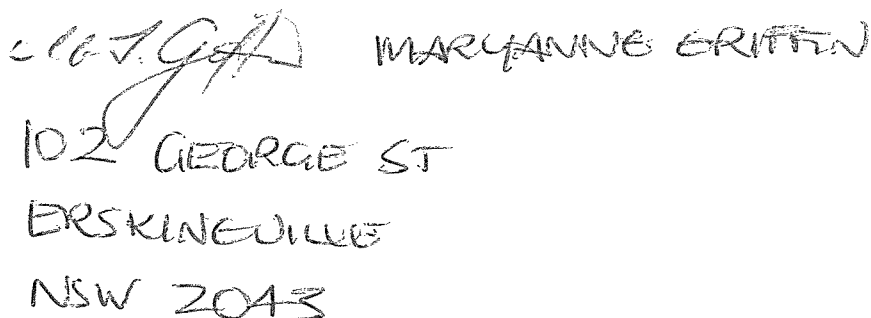 MARYANNE GRIFFIN
102 GEORGE ST
ERSKINEVILLE
NSW 2043